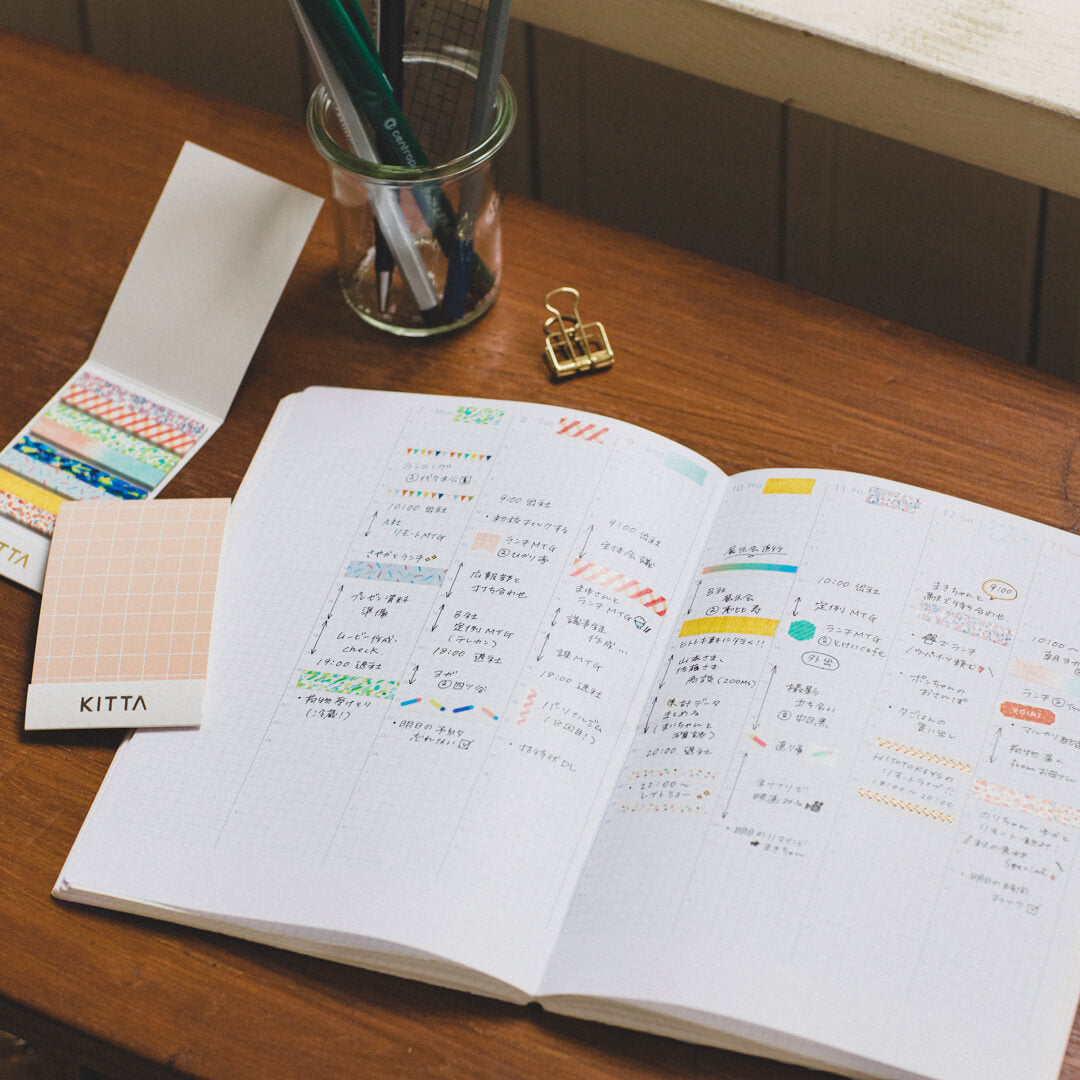 centrop
KITTA
KITTA
7 Mon
ランニング
@代々木公園
10:00 出社
A社
リモートMTG
さやかとランチ
プレゼン資料
準備
ムービー作成、
check.
19:00 退社
・荷物受けとり
(冷蔵!)
8 Tue
9:00 出社
・初校チェックする
ランチMTG
@ひかり亭
広報部と
打ち合わせ
B社
定例MTG
(テレカン)
18:00 退社
ヨガ
@四ツ谷
・明日の予約
忘れない
9 Wed
9:00 出社
全体会議
まゆさんと
ランチMTG
議事録
作成…
課MTG
18:00 退社
パーソナルジム
(8回目!)
・招待状DL
10 Thu
展示会直行
B社
展示会
@恵比寿
ヒトト本町に行く!!
山本さま、
商談(ZOOM)
集計データ
まとめる
(まいちゃんと
確認)
20:00 退社
・22:00〜
レイトショー
11 Fri
10:00 出社
定例MTG
ランチMTG
@kitui cafe
外出
撮影
立ち会い
@中目黒
直り帰
ネリフリで
映画みる
・明日のリマインド
➡まきちゃん
12 Sat
9:00
まきちゃんと
駅で待ち合わせ
家でランチ
ハウパーイツ頼む
・ポンちゃんの
おさんぽ
・夕ごはんの
買い出し
HITOTOKEYSの
リモートライブ!!
18:00〜20:00
13
10:00〜
朝ヨガ
ランチ
POINT
・マルカリ発送
荷物届く
from お母さん
のりちゃん ゆかと
リモート飲み!
Special
・明日の時間
チェック